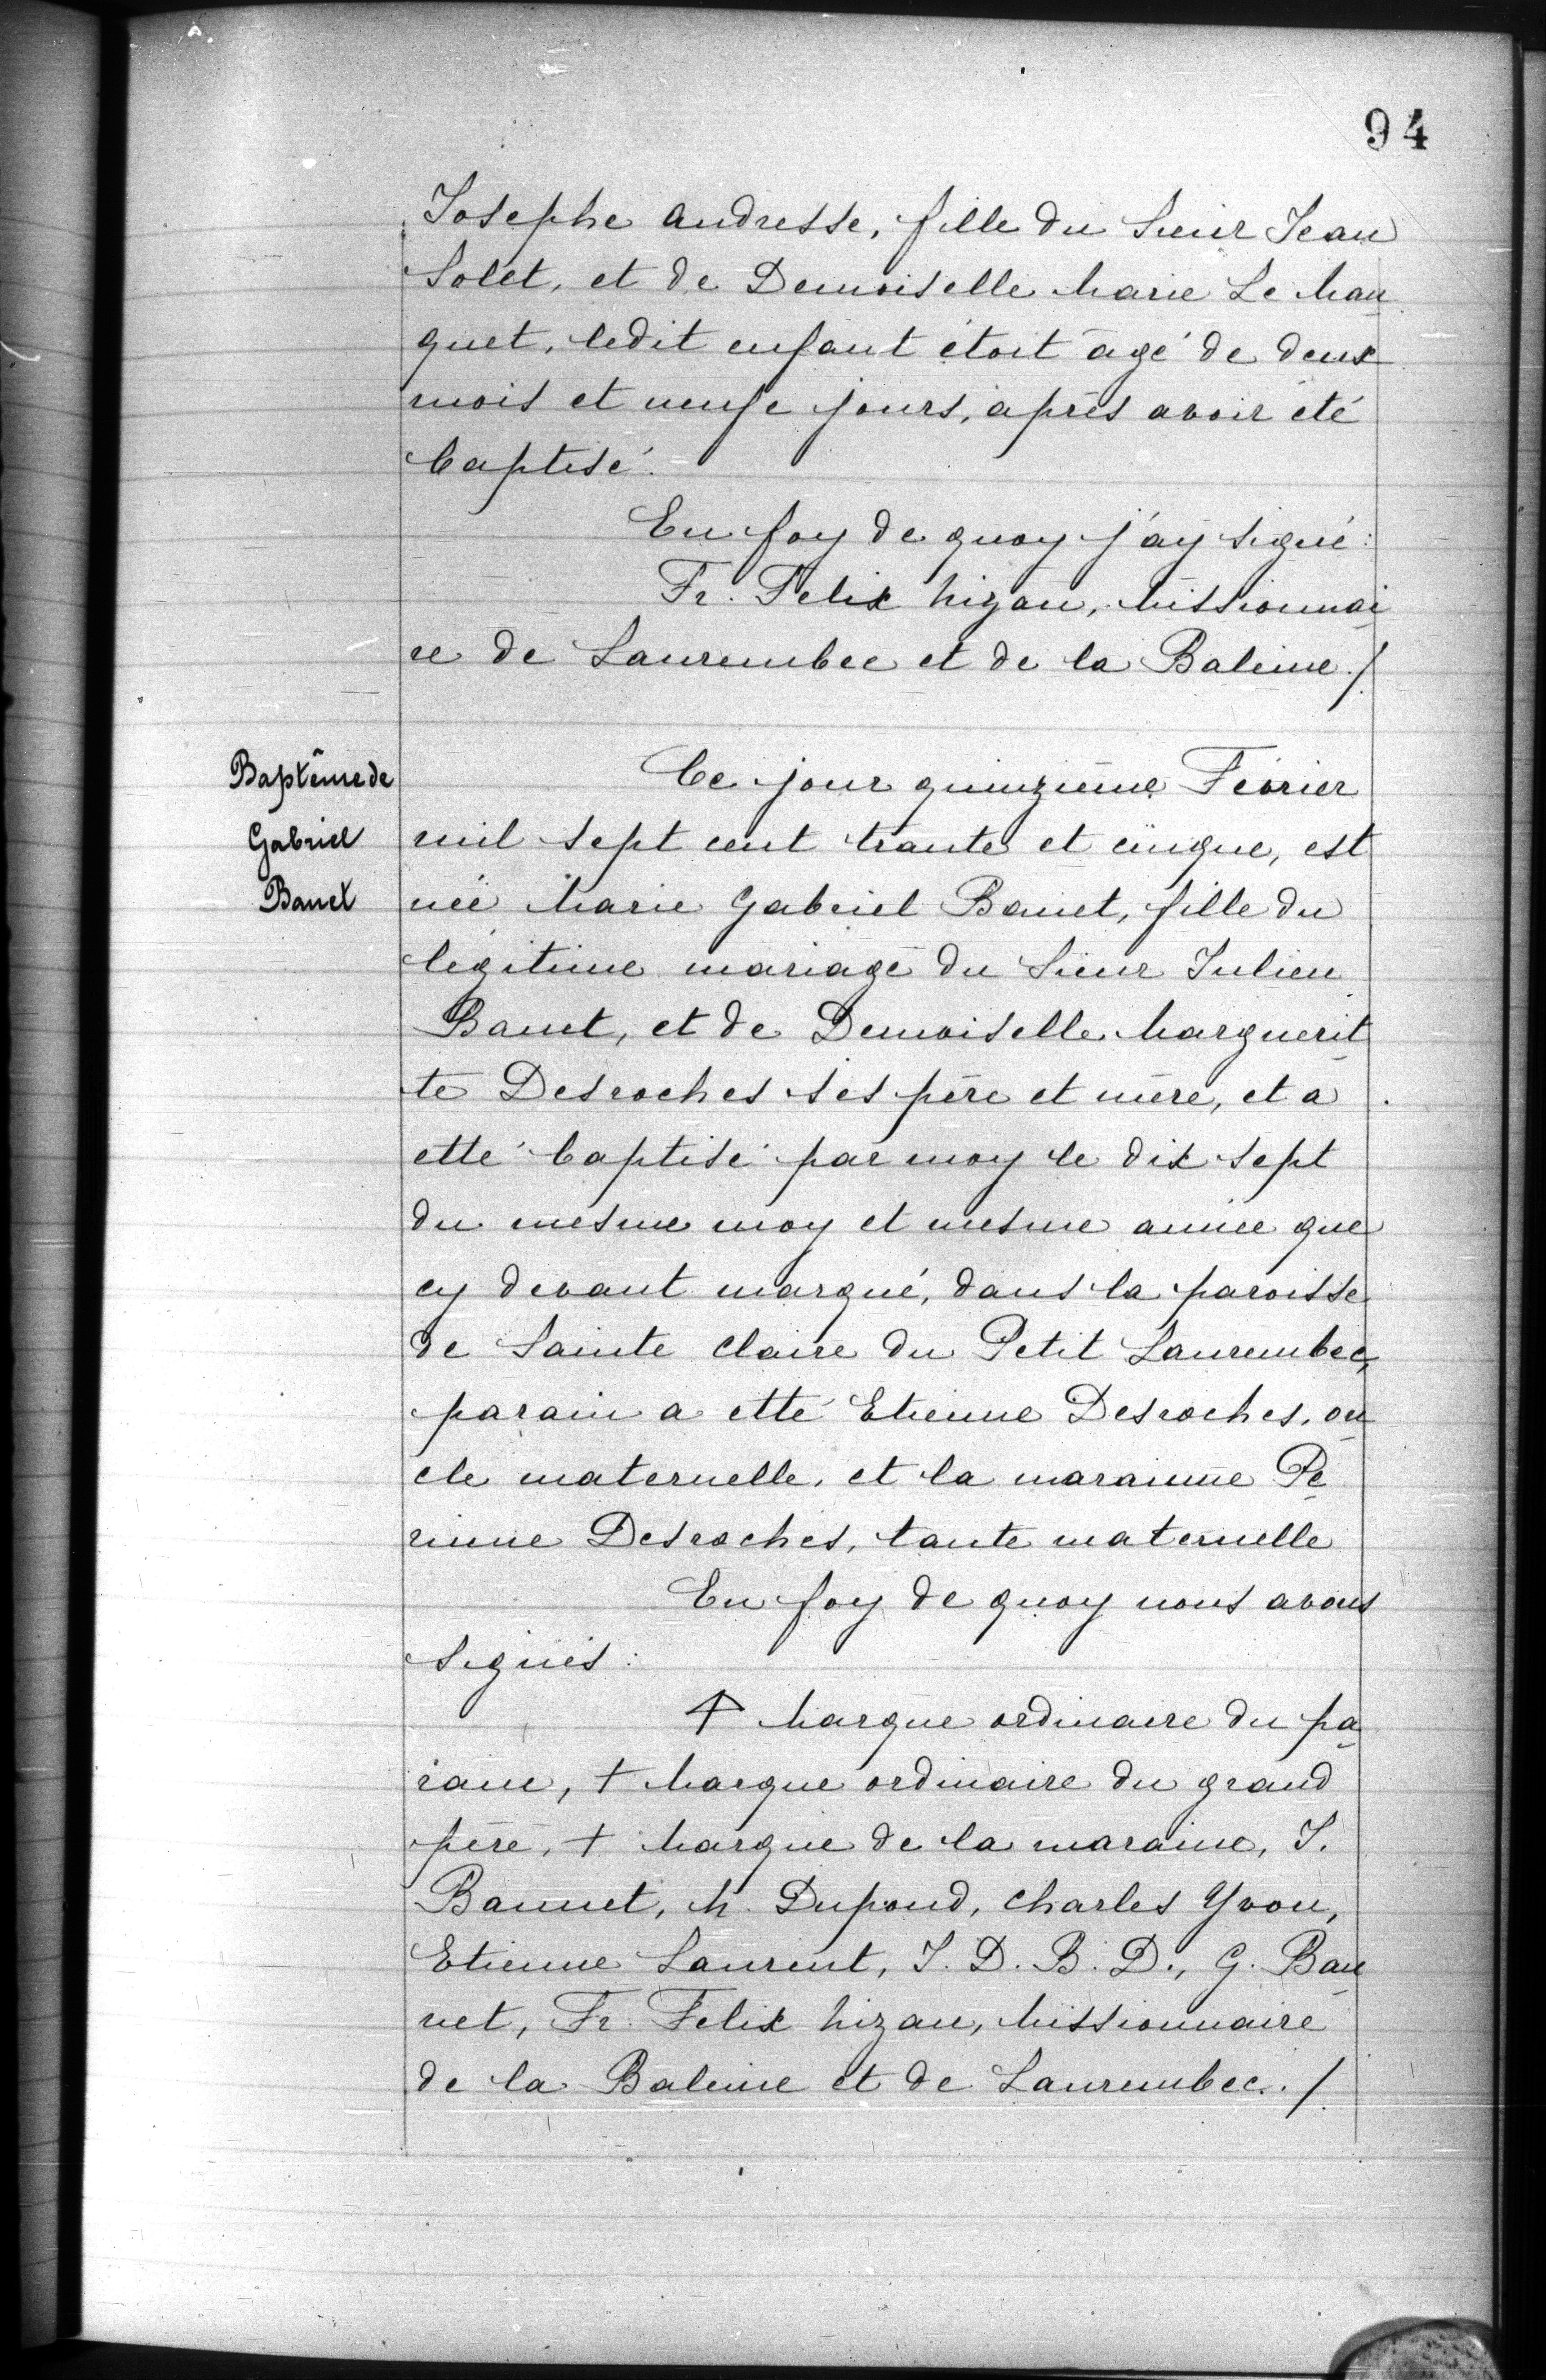 94
Josephe Andresse, fille du Sieur Jean
Solet, et de Demoiselle Marie Le Man
quet, ledit enfant étoit agé de deux
mois et neufe jours, après avoir été
baptisé.
En foy de quoy j'ay signé:
Fr. Felix Nizan, Missionnai
re de Laurembec et de la Baleine./.
Baptême de
Gabriel
Banet
Ce jour quinzième Février
mil sept cent trante et cinque, est
née Marie Gabriel Banet, fille du
légitime mariage du Sieur Julien
Banet, et de Demoiselle Marguerit
te Desroches ses père et mère, et a
etté baptisé par moy le dix sept
du mesme moy et mesme année que
cy devant marqué, dans la paroisse
de Sainte Claire du Petit Laurembec,
parain a etté Etienne Desroches, on
cle maternelle, et la marainne Pe
rinne Desroches, tante maternelle
En foy de quoy nous avons
signés:
† Marque ordinaire du pa
rain, † Marque ordinaire du grand
père, † Marque de la maraine, J.
Bannet, M. Dupond, Charles Yvon,
Etienne Laurent, J. D. B. D., G. Ban
net, Fr. Felix Nizan, Missionnaire
de la Baleine et de Laurembec./.